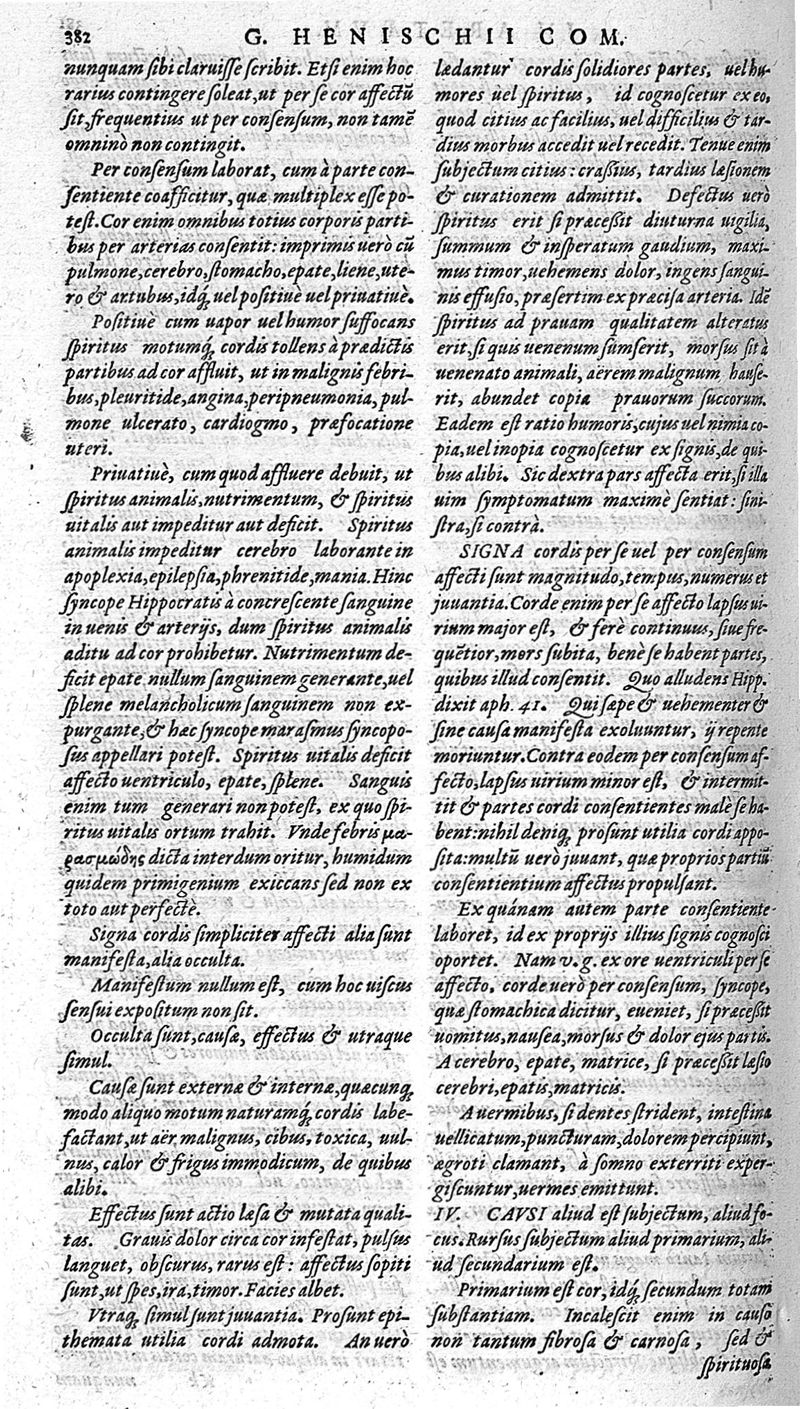 382
G. HENISCHII COM.
nunquam sibi claruisse scribit. Etsi enim hoc
rarius contingere soleat, ut per se cor affectū
sit, frequentius ut per consensum, non tamē
omninò non contingit.
Per consensum laborat, cum à parte con-
sentiente coafficitur, quæ multiplex esse po-
test. Cor enim omnibus totius corporis parti-
bus per arterias consentit: imprimis uerò cū
pulmone, cerebro, stomacho, epate, liene, ute-
ro & artubus, idq́, uel positiuè uel priuatiuè.
Positiuè cum uapor uel humor suffocans
spiritus motumq́, cordis tollens à prædictis
partibus ad cor affluit, ut in malignis febri-
bus, pleuritide, angina, peripneumonia, pul-
mone ulcerato, cardiogmo, præfocatione
uteri.
Priuatiuè, cum quod affluere debuit, ut
spiritus animalis, nutrimentum, & spiritus
uitalis aut impeditur aut deficit. Spiritus
animalis impeditur cerebro laborante in
apoplexia, epilepsia, phrenitide, mania. Hinc
syncope Hippocratis à concrescente sanguine
in uenis & arterijs, dum spiritus animalis
aditu ad cor prohibetur. Nutrimentum de-
ficit epate nullum sanguinem generante, uel
splene melancholicum sanguinem non ex-
purgante, & hæc syncope marasmus syncopo-
sus appellari potest. Spiritus uitalis deficit
affecto uentriculo, epate, splene. Sanguis
enim tum generari non potest, ex quo spi-
ritus uitalis ortum trahit. Vnde febris μα-
ρασμώδης dicta interdum oritur, humidum
quidem primigenium exiccans sed non ex
toto aut perfectè.
Signa cordis simpliciter affecti alia sunt
manifesta, alia occulta.
Manifestum nullum est, cum hoc uiscus
sensui expositum non sit.
Occulta sunt, causæ, effectus & utraque
simul.
Causæ sunt externæ & internæ, quæcunq́,
modo aliquo motum naturamq́, cordis labe-
factant, ut aër malignus, cibus, toxica, uul-
nus, calor & frigus immodicum, de quibus
alibi.
Effectus sunt actio læsa & mutata quali-
tas. Grauis dolor circa cor infestat, pulsus
languet, obscurus, rarus est: affectus sopiti
sunt, ut spes, ira, timor. Facies albet.
Vtraq́, simul sunt juuantia. Prosunt epi-
themata utilia cordi admota. An uerò
lædantur cordis solidiores partes, uel hu-
mores uel spiritus, id cognoscetur ex eo,
quod citius ac facilius, uel difficilius & tar-
dius morbus accedit uel recedit. Tenue enim
subjectum citius: crassius, tardius læsionem
& curationem admittit. Defectus uerò
spiritus erit si præcessit diuturna uigilia,
summum & insperatum gaudium, maxi-
mus timor, uehemens dolor, ingens sangui-
nis effusio, præsertim ex præcisa arteria. Idē
spiritus ad prauam qualitatem alteratus
erit, si quis uenenum sumserit, morsus sit à
uenenato animali, aërem malignum hause-
rit, abundet copia prauorum succorum.
Eadem est ratio humoris, cujus uel nimia co-
pia, uel inopia cognoscetur ex signis, de qui-
bus alibi. Sic dextra pars affecta erit, si illa
uim symptomatum maximè sentiat: sini-
stra, si contrà.
SIGNA cordis per se uel per consensum
affecti sunt magnitudo, tempus, numerus et
juuantia. Corde enim per se affecto lapsus ui-
rium major est, & ferè continuus, siue fre-
quētior, mors subita, benè se habent partes,
quibus illud consentit. Quo alludens Hipp.
dixit aph. 41. Qui sæpe & uehementer &
sine causa manifesta exoluuntur, ij repente
moriuntur. Contra eodem per consensum af-
fecto, lapsus uirium minor est, & intermit-
tit & partes cordi consentientes malè se ha-
bent: nihil deniq́, prosunt utilia cordi appo-
sita: multū uerò juuant, quæ proprios partiū
consentientium affectus propulsant.
Ex quánam autem parte consentiente
laboret, id ex proprijs illius signis cognosci
oportet. Nam v. g. ex ore uentriculi per se
affecto, corde uerò per consensum, syncope,
quæ stomachica dicitur, eueniet, si præcessit
uomitus, nausea, morsus & dolor ejus partis.
A cerebro, epate, matrice, si præcessit læsio
cerebri, epatis, matricis.
A uermibus, si dentes strident, intestina
uellicatum, puncturam, dolorem percipiunt,
ægroti clamant, à somno exterriti exper-
giscuntur, uermes emittunt.
IV. CAVSI aliud est subjectum, aliud fo-
cus. Rursus subjectum aliud primarium, ali-
ud secundarium est.
Primarium est cor, idq́, secundum totam
substantiam. Incalescit enim in causo
non tantum fibrosa & carnosa, sed &
spirituosa